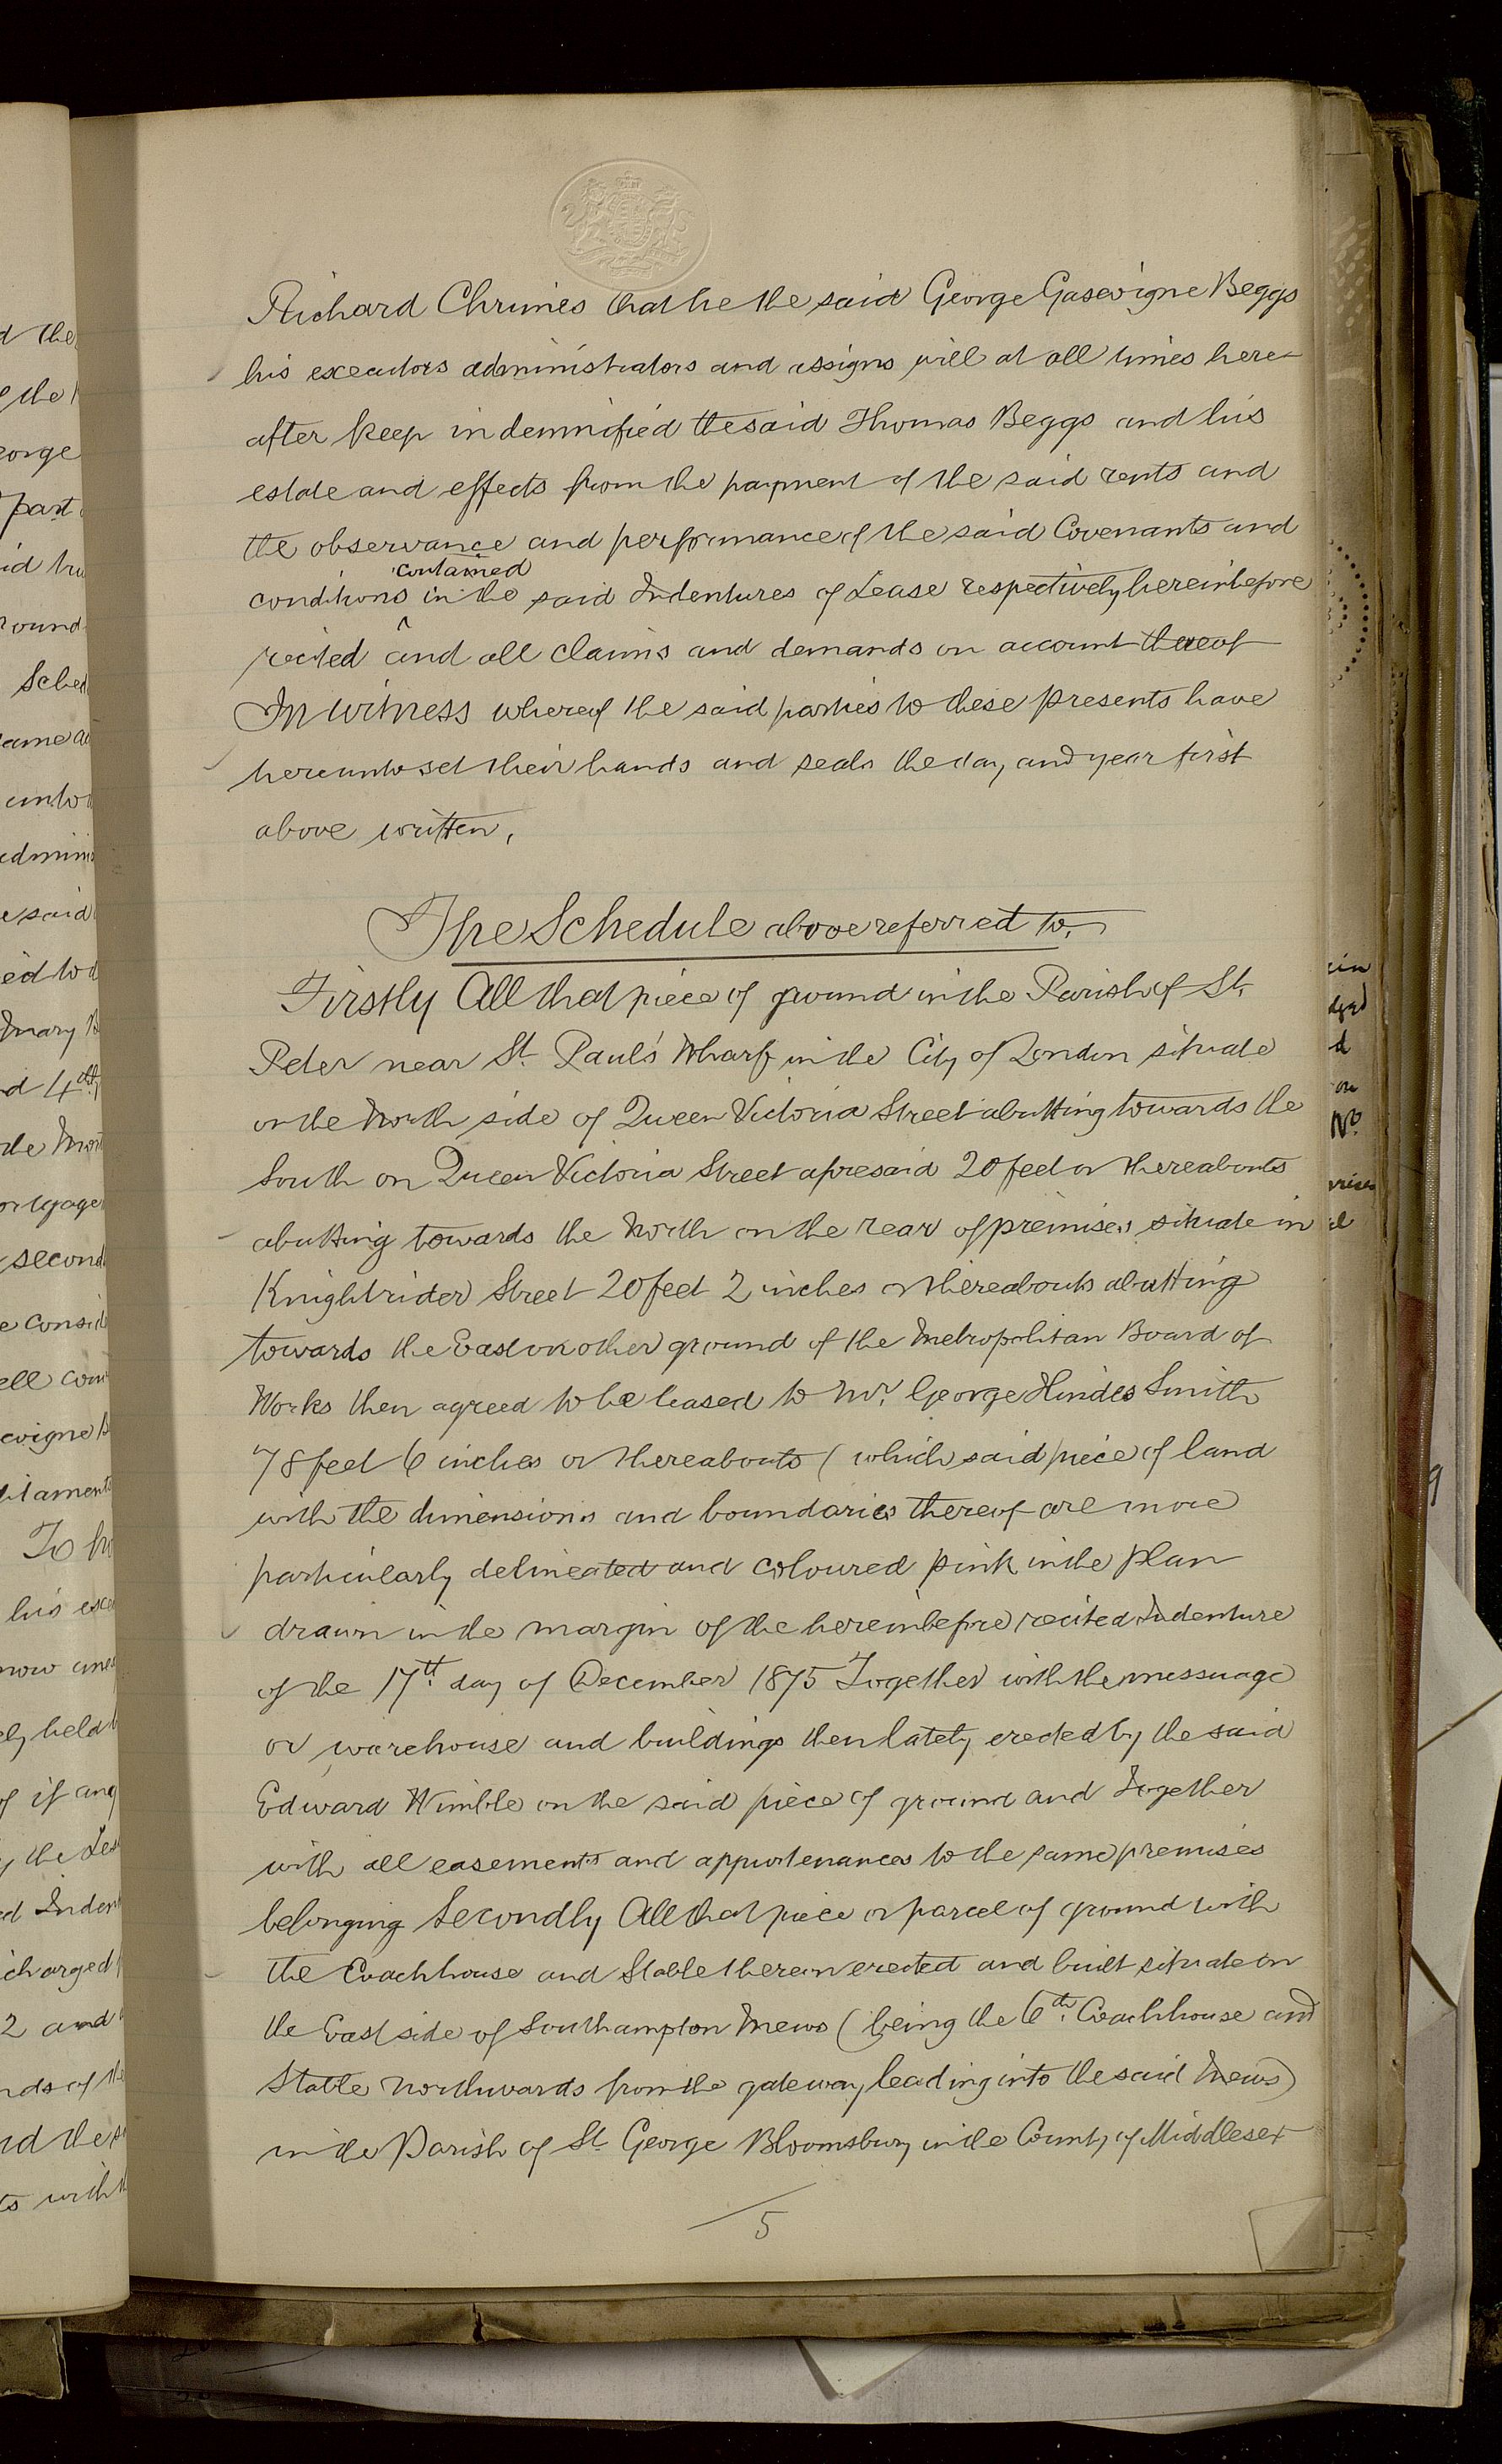 Richard Chrimes that he the said George Gascoigne Beggs
his executors administrators and assigns will at all times here-
after keep indemnified the said Thomas Beggs and his
estate and effects from the payment of the said rents and
the observance and performance of the said Covenants and
contained
conditions in the said Indentures of Lease respectively hereinbefore
recited and all claims and demands on account thereof
In witness whereof the said parties to these presents have
hereunto set their hands and seals the day and year first
above written.
The Schedule above referred to.
Firstly All that piece of ground in the Parish of St.
Peter near St. Paul's Wharf in the City of London situate
on the North side of Queen Victoria Street abutting towards the
South on Queen Victoria Street aforesaid 20 feet or thereabouts
abutting towards the North on the rear of premises situate in
Knightrider Street 20 feet 2 inches or thereabouts abutting
towards the East on other ground of the Metropolitan Board of
Works then agreed to be leased to Mr. George Hindes Smith
78 feet 6 inches or thereabouts (which said piece of land
with the dimensions and boundaries thereof are more
particularly delineated and coloured pink in the plan
drawn in the margin of the hereinbefore recited Indenture
of the 17th day of December 1875 Together with the messuage
or warehouse and buildings then lately erected by the said
Edward Wimble on the said piece of ground and Together
with all easements and appurtenances to the same premises
belonging Secondly All that piece or parcel of ground with
the Coachhouse and Stable thereon erected and built situate on
the East side of Southampton Mews (being the 6th Coachhouse and
Stable northwards from the gateway leading into the said Mews)
in the Parish of St. George Bloomsbury in the County of Middlesex
5